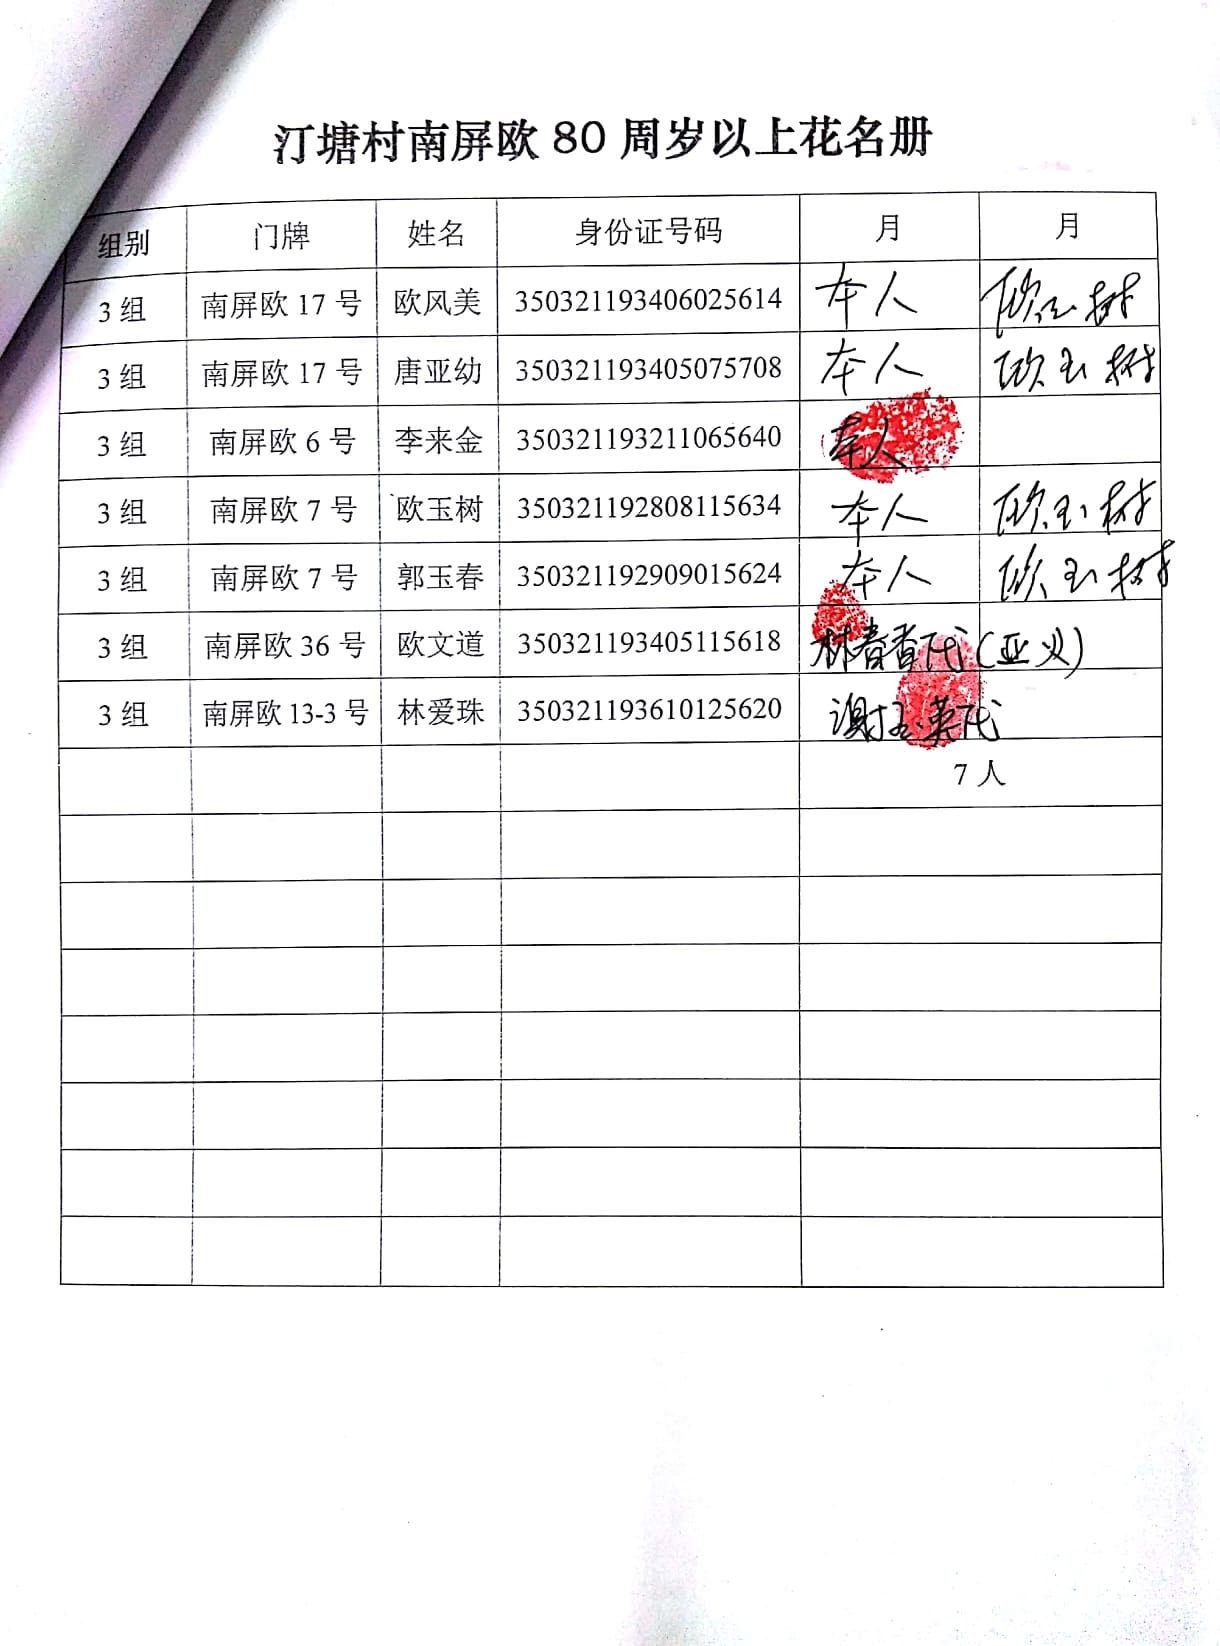 汀塘村南屏欧 80 周岁以上花名册
组别 门牌 姓名 身份证号码 月 月
3 组 南屏欧 17 号 欧风美 350321193406025614 本人 欧玉树
3 组 南屏欧 17 号 唐亚幼 350321193405075708 本人 欧玉树
3 组 南屏欧 6 号 李来金 350321193211065640 本人
3 组 南屏欧 7 号 欧玉树 350321192808115634 本人 欧玉树
3 组 南屏欧 7 号 郭玉春 350321192909015624 本人 欧玉树
3 组 南屏欧 36 号 欧文道 350321193405115618 林春香代(亚义)
3 组 南屏欧 13-3 号 林爱珠 350321193610125620 谢玉英代
7 人